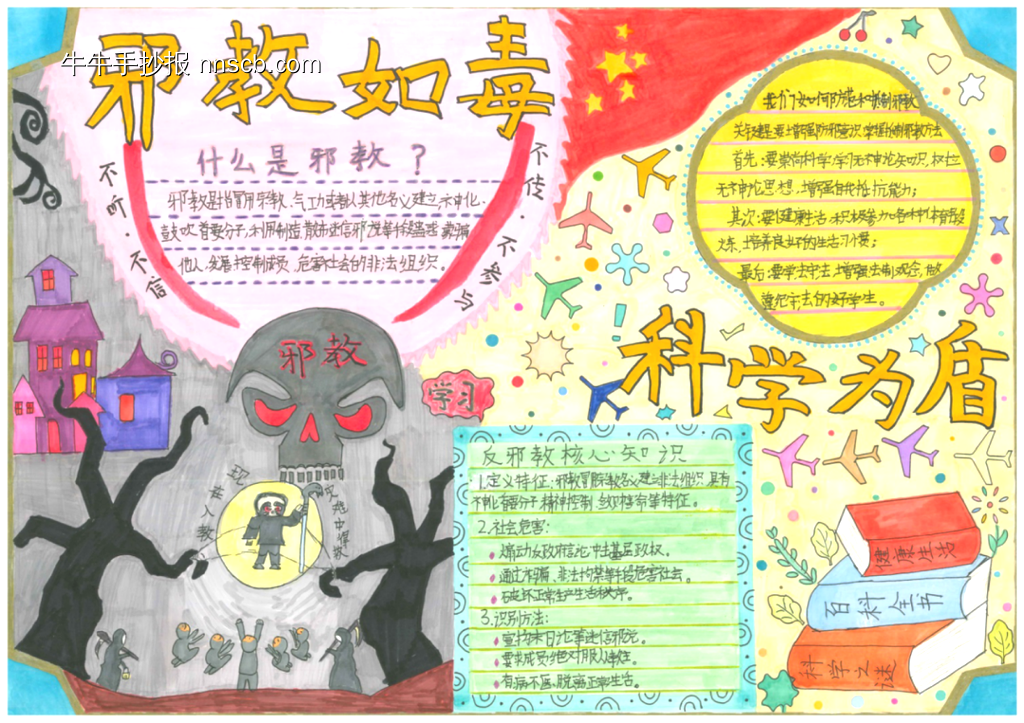 牛牛手抄报 nnscb.com
邪教如毒
什么是邪教？
邪教是指冒用宗教、气功或者以其他名义建立、神化、
鼓吹首要分子,利用制造散布迷信邪说等手段蛊惑蒙骗
他人,发展控制成员,危害社会的非法组织。
不听·不信
不传·不参与
邪教
现世人教
灾难中
学习
我们如何防范和抵制邪教
关键是要增强防邪意识,掌握防邪教方法
首先:要崇尚科学,学习无神论知识,树立
无神论思想,增强自我抵抗能力;
其次:要健康生活,积极参加各种体育锻
炼,培养良好的生活习惯;
最后:要学法守法,增强法制观念,做
遵纪守法的好学生。
科学为盾
反邪教核心知识
1.定义特征:邪教冒用宗教名义建立非法组织,具有
神化首要分子、精神控制、敛财害命等特征。
2.社会危害:
煽动反政府言论,冲击基层政权。
通过诈骗、非法拘禁等手段危害社会。
破坏正常生产生活秩序。
3.识别方法:
宣扬末日论等迷信邪说。
要求成员绝对服从教主。
有病不医,脱离正常生活。
健康生活
百科全书
科学之谜